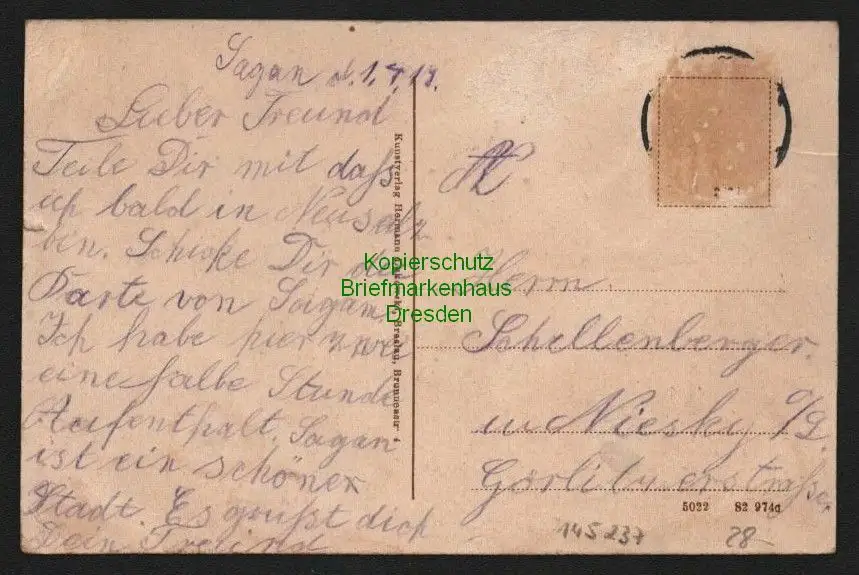 Sagan d. 1.4.19.
Lieber Freund
Teile Dir mit daß
ich bald in Neusalz
bin. Schicke Dir die
Karte von Sagan,
Ich habe hier zwei
eine halbe Stunde
Aufenthalt. Sagan
ist ein schöner
Stadt. Es grüßt dich
Dein Freund
Kunstverlag Hermann Breslau, Brunnenstr. 4
Herrn
Schellenberger.
in Niesky O/L.
Görlitzerstraße
5022 S2 974a
145237 28-
Kopierschutz
Briefmarkenhaus
Dresden